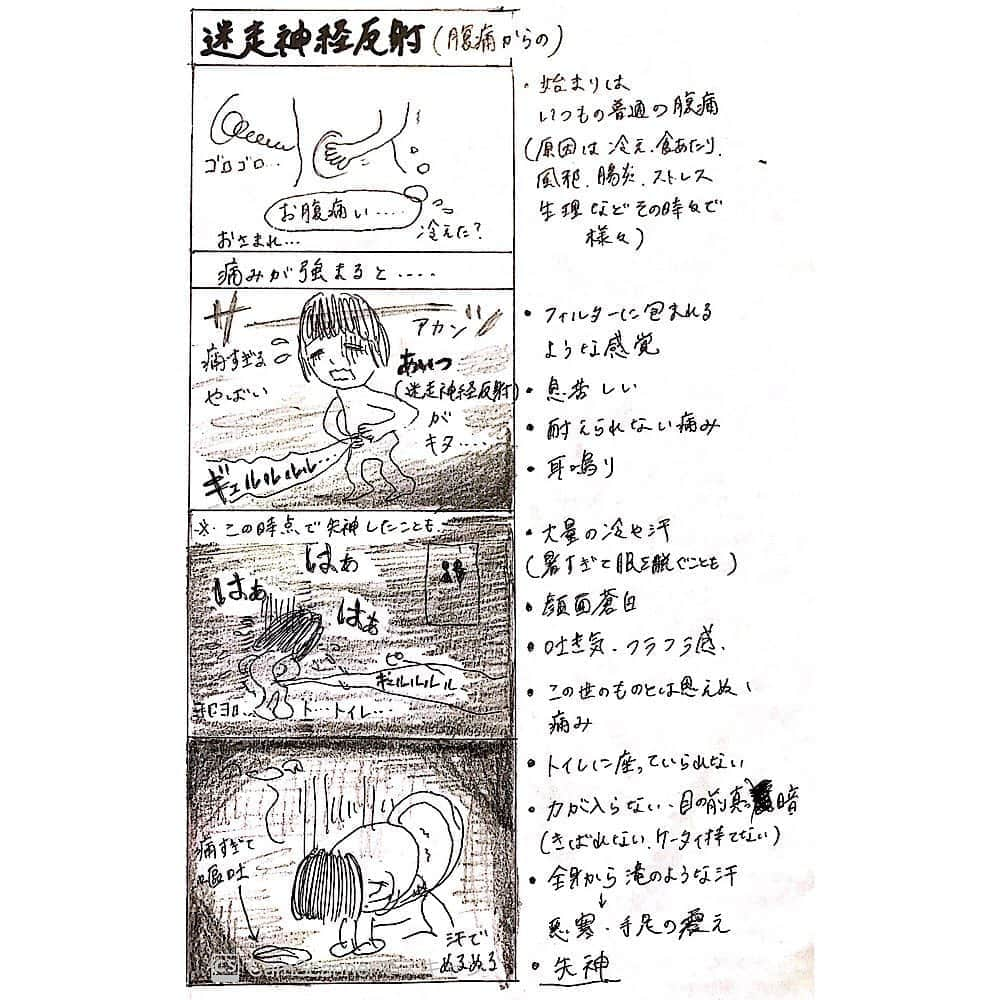 迷走神経反射(腹痛からの)
ゴロゴロ…
お腹痛い……
おさまれ…
冷えた?
・始まりは
いつもの普通の腹痛
(原因は冷え、食あたり、
風邪、腸炎、ストレス
生理などその時々で
様々)
痛みが強まると……
アカン
痛すぎる
やばい
あいつ
(迷走神経反射)
が
キタ……
ギュルルルル…
・フィルターに包まれる
ような感覚
・息苦しい
・耐えられない痛み
・耳鳴り
※この時点で失神したことも
はぁ
はぁ
はぁ
ギュルルルル
ヨロヨロ…
ト…トイレ…
・大量の冷や汗
(暑すぎて服を脱ぐことも)
・顔面蒼白
・吐き気、フラフラ感、
・この世のものとは思えぬ
痛み
痛すぎて
嘔吐
汗で
ぬるぬる
・トイレに座っていられない
・力が入らない、目の前真っ暗
(きばれない、ケータイ持てない)
・全身から滝のような汗
↓
悪寒・手足の震え
・失神